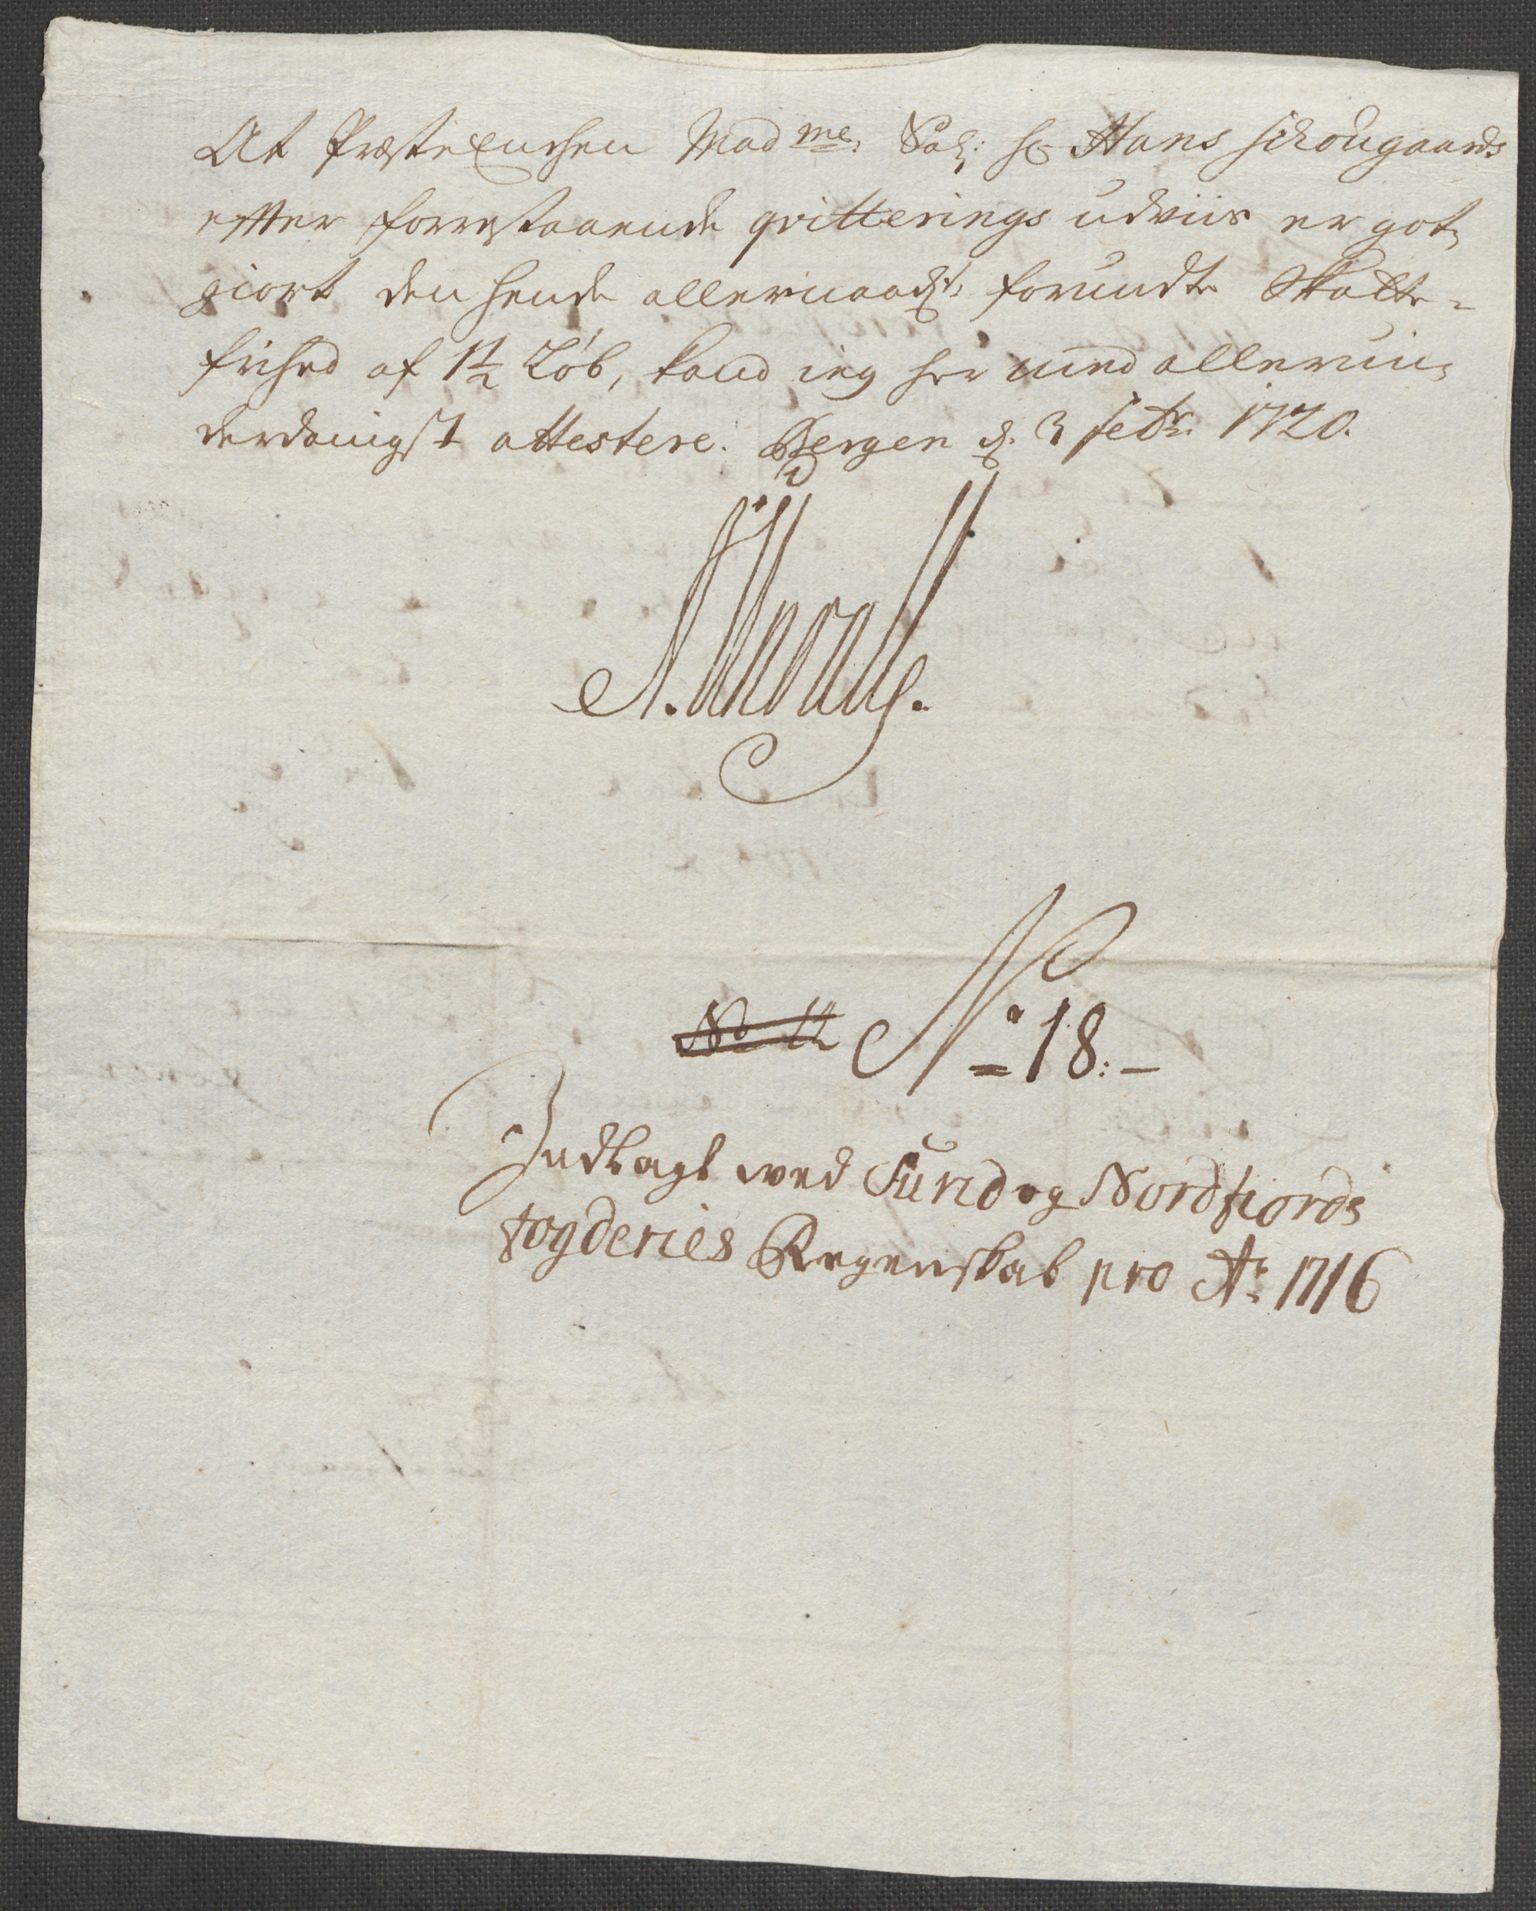 At Præste Enchen Mad me: Sal: hr Hans Schougaards
efter forrestaaende qvitterings udviis er got,
giort den hende allernaadst: forundte Skatte-
frihed af 1½ Løb, kand ieg her med allerun,
derdanigst attestere. Bergen d. 3 febr: 1720.
No 12 No 18:-
Indlagt ved Sund og Nordfiords
fogderies Regenskab pro Ao: 1716